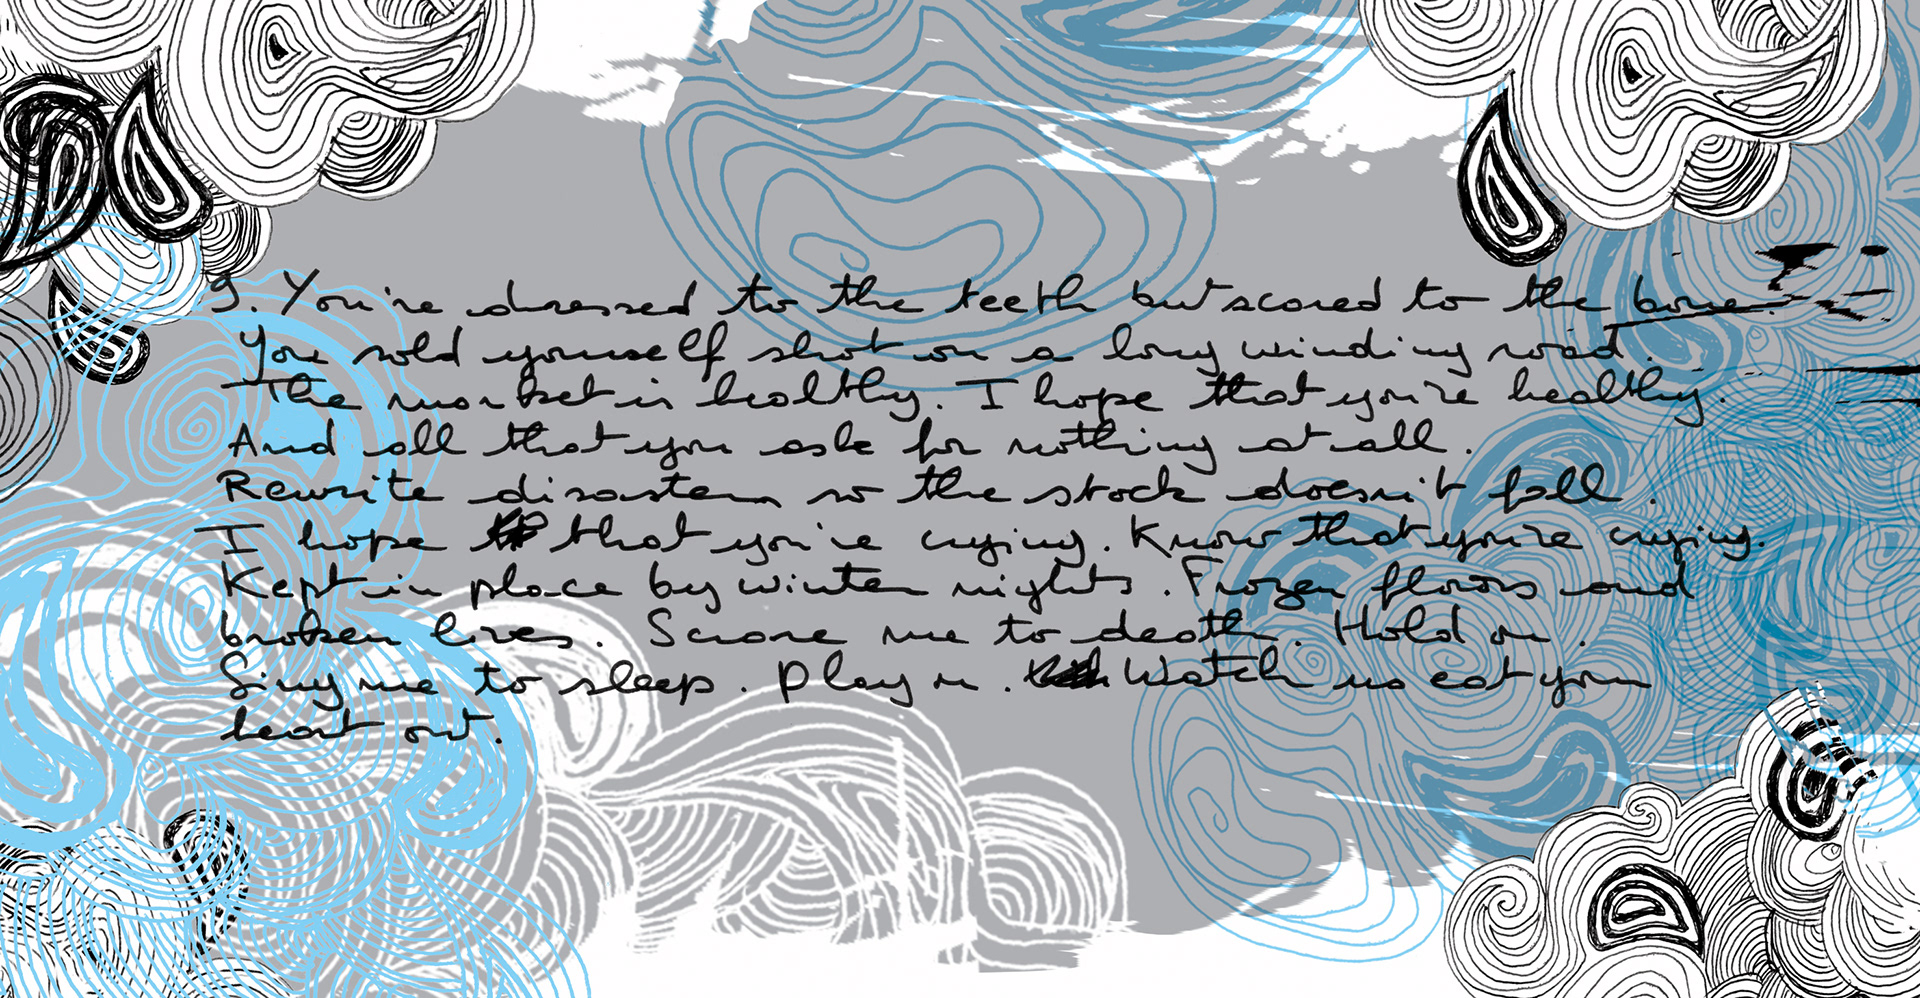 9. You're dressed to the teeth but scared to the bone.
You sold yourself shot on a long winding road.
The market is healthy. I hope that you're healthy.
And all that you ask for nothing at all.
Rewrite disaster so the stock doesn't fall.
I hope that you're crying. Know that you're crying.
Kept in place by winter nights. Frozen floors and
broken lives. Scare me to death. Hold on.
Sing me to sleep. Play on. Watch us eat your
heart out.